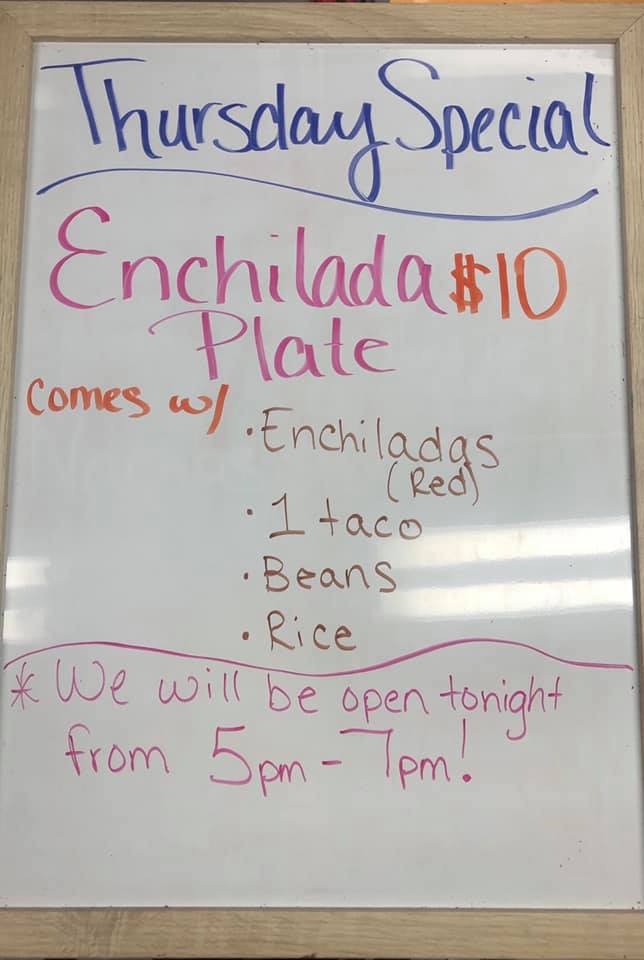 Thursday Special
Enchilada $10
Plate
Comes w/
· Enchiladas
(Red)
· 1 taco
· Beans
· Rice
* We will be open tonight
from 5pm - 7pm!